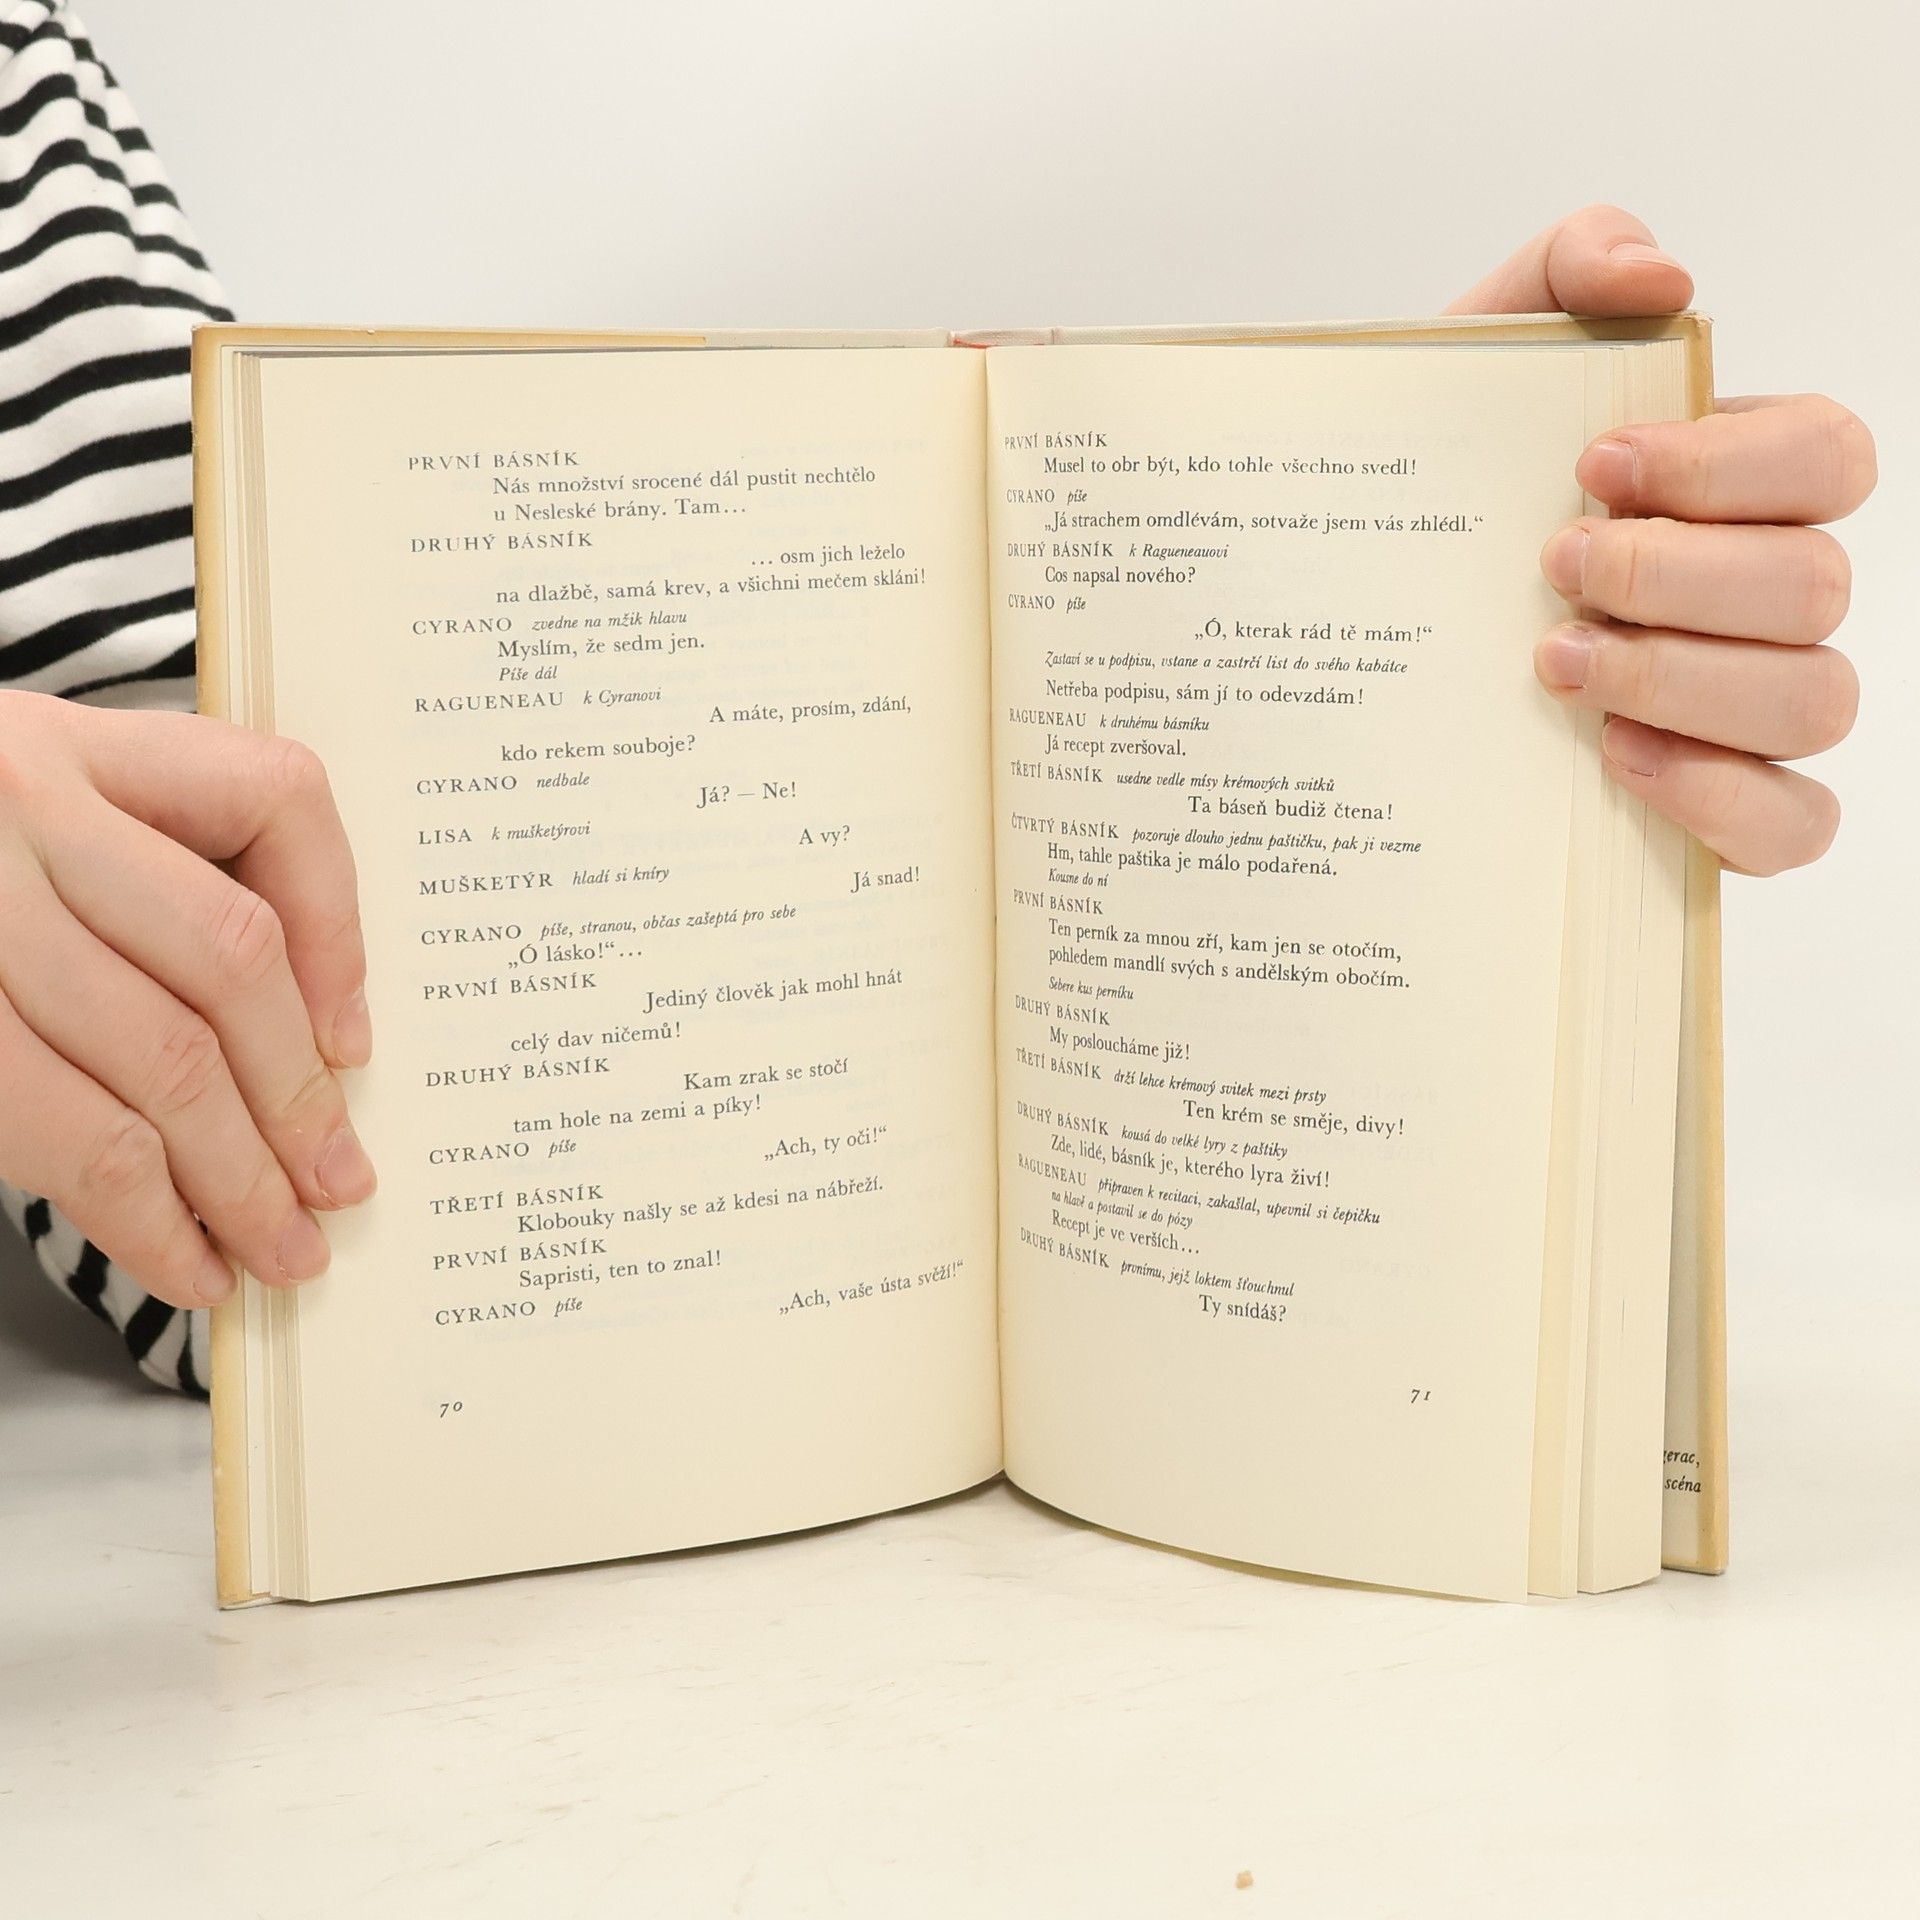 PRVNÍ BÁSNÍK
Nás množství srocené dál pustit nechtělo
u Nesleské brány. Tam...
DRUHÝ BÁSNÍK
... osm jich leželo
na dlažbě, samá krev, a všichni mečem skláni!
CYRANO zvedne na mžik hlavu
Myslím, že sedm jen.
Píše dál
RAGUENEAU k Cyranovi
A máte, prosím, zdání,
kdo rekem souboje?
CYRANO nedbale
Já? — Ne!
LISA k mušketýrovi
A vy?
MUŠKETÝR hladí si kníry
Já snad!
CYRANO píše, stranou, občas zašeptá pro sebe
„Ó lásko!“...
PRVNÍ BÁSNÍK
Jediný člověk jak mohl hnát
celý dav ničemů!
DRUHÝ BÁSNÍK
Kam zrak se stočí
tam hole na zemi a píky!
CYRANO píše
„Ach, ty oči!“
TŘETÍ BÁSNÍK
Klobouky našly se až kdesi na nábřeží.
PRVNÍ BÁSNÍK
Sapristi, ten to znal!
CYRANO píše
„Ach, vaše ústa svěží!“
70
PRVNÍ BÁSNÍK
Musel to obr být, kdo tohle všechno svedl!
CYRANO píše
„Já strachem omdlévám, sotvaže jsem vás zhlédl.“
DRUHÝ BÁSNÍK k Ragueneauovi
Cos napsal nového?
CYRANO píše
„Ó, kterak rád tě mám!“
Zastaví se u podpisu, vstane a zastrčí list do svého kabátce
Netřeba podpisu, sám jí to odevzdám!
RAGUENEAU k druhému básníku
Já recept zveršoval.
TŘETÍ BÁSNÍK usedne vedle mísy krémových svitků
Ta báseň budiž čtena!
ČTVRTÝ BÁSNÍK pozoruje dlouho jednu paštičku, pak ji vezme
Hm, tahle paštika je málo podařená.
Kousne do ní
PRVNÍ BÁSNÍK
Ten perník za mnou zří, kam jen se otočím,
pohledem mandlí svých s andělským obočím.
Sebere kus perníku
DRUHÝ BÁSNÍK
My posloucháme již!
TŘETÍ BÁSNÍK drží lehce krémový svitek mezi prsty
Ten krém se směje, divy!
DRUHÝ BÁSNÍK kousá do velké lyry z paštiky
Zde, lidé, básník je, kterého lyra živí!
RAGUENEAU připraven k recitaci, zakašlal, upevnil si čepičku
na hlavě a postavil se do pózy
Recept je ve verších...
DRUHÝ BÁSNÍK prvnímu, jejž loktem šťouchnul
Ty snídáš?
71
gerac,
scéna